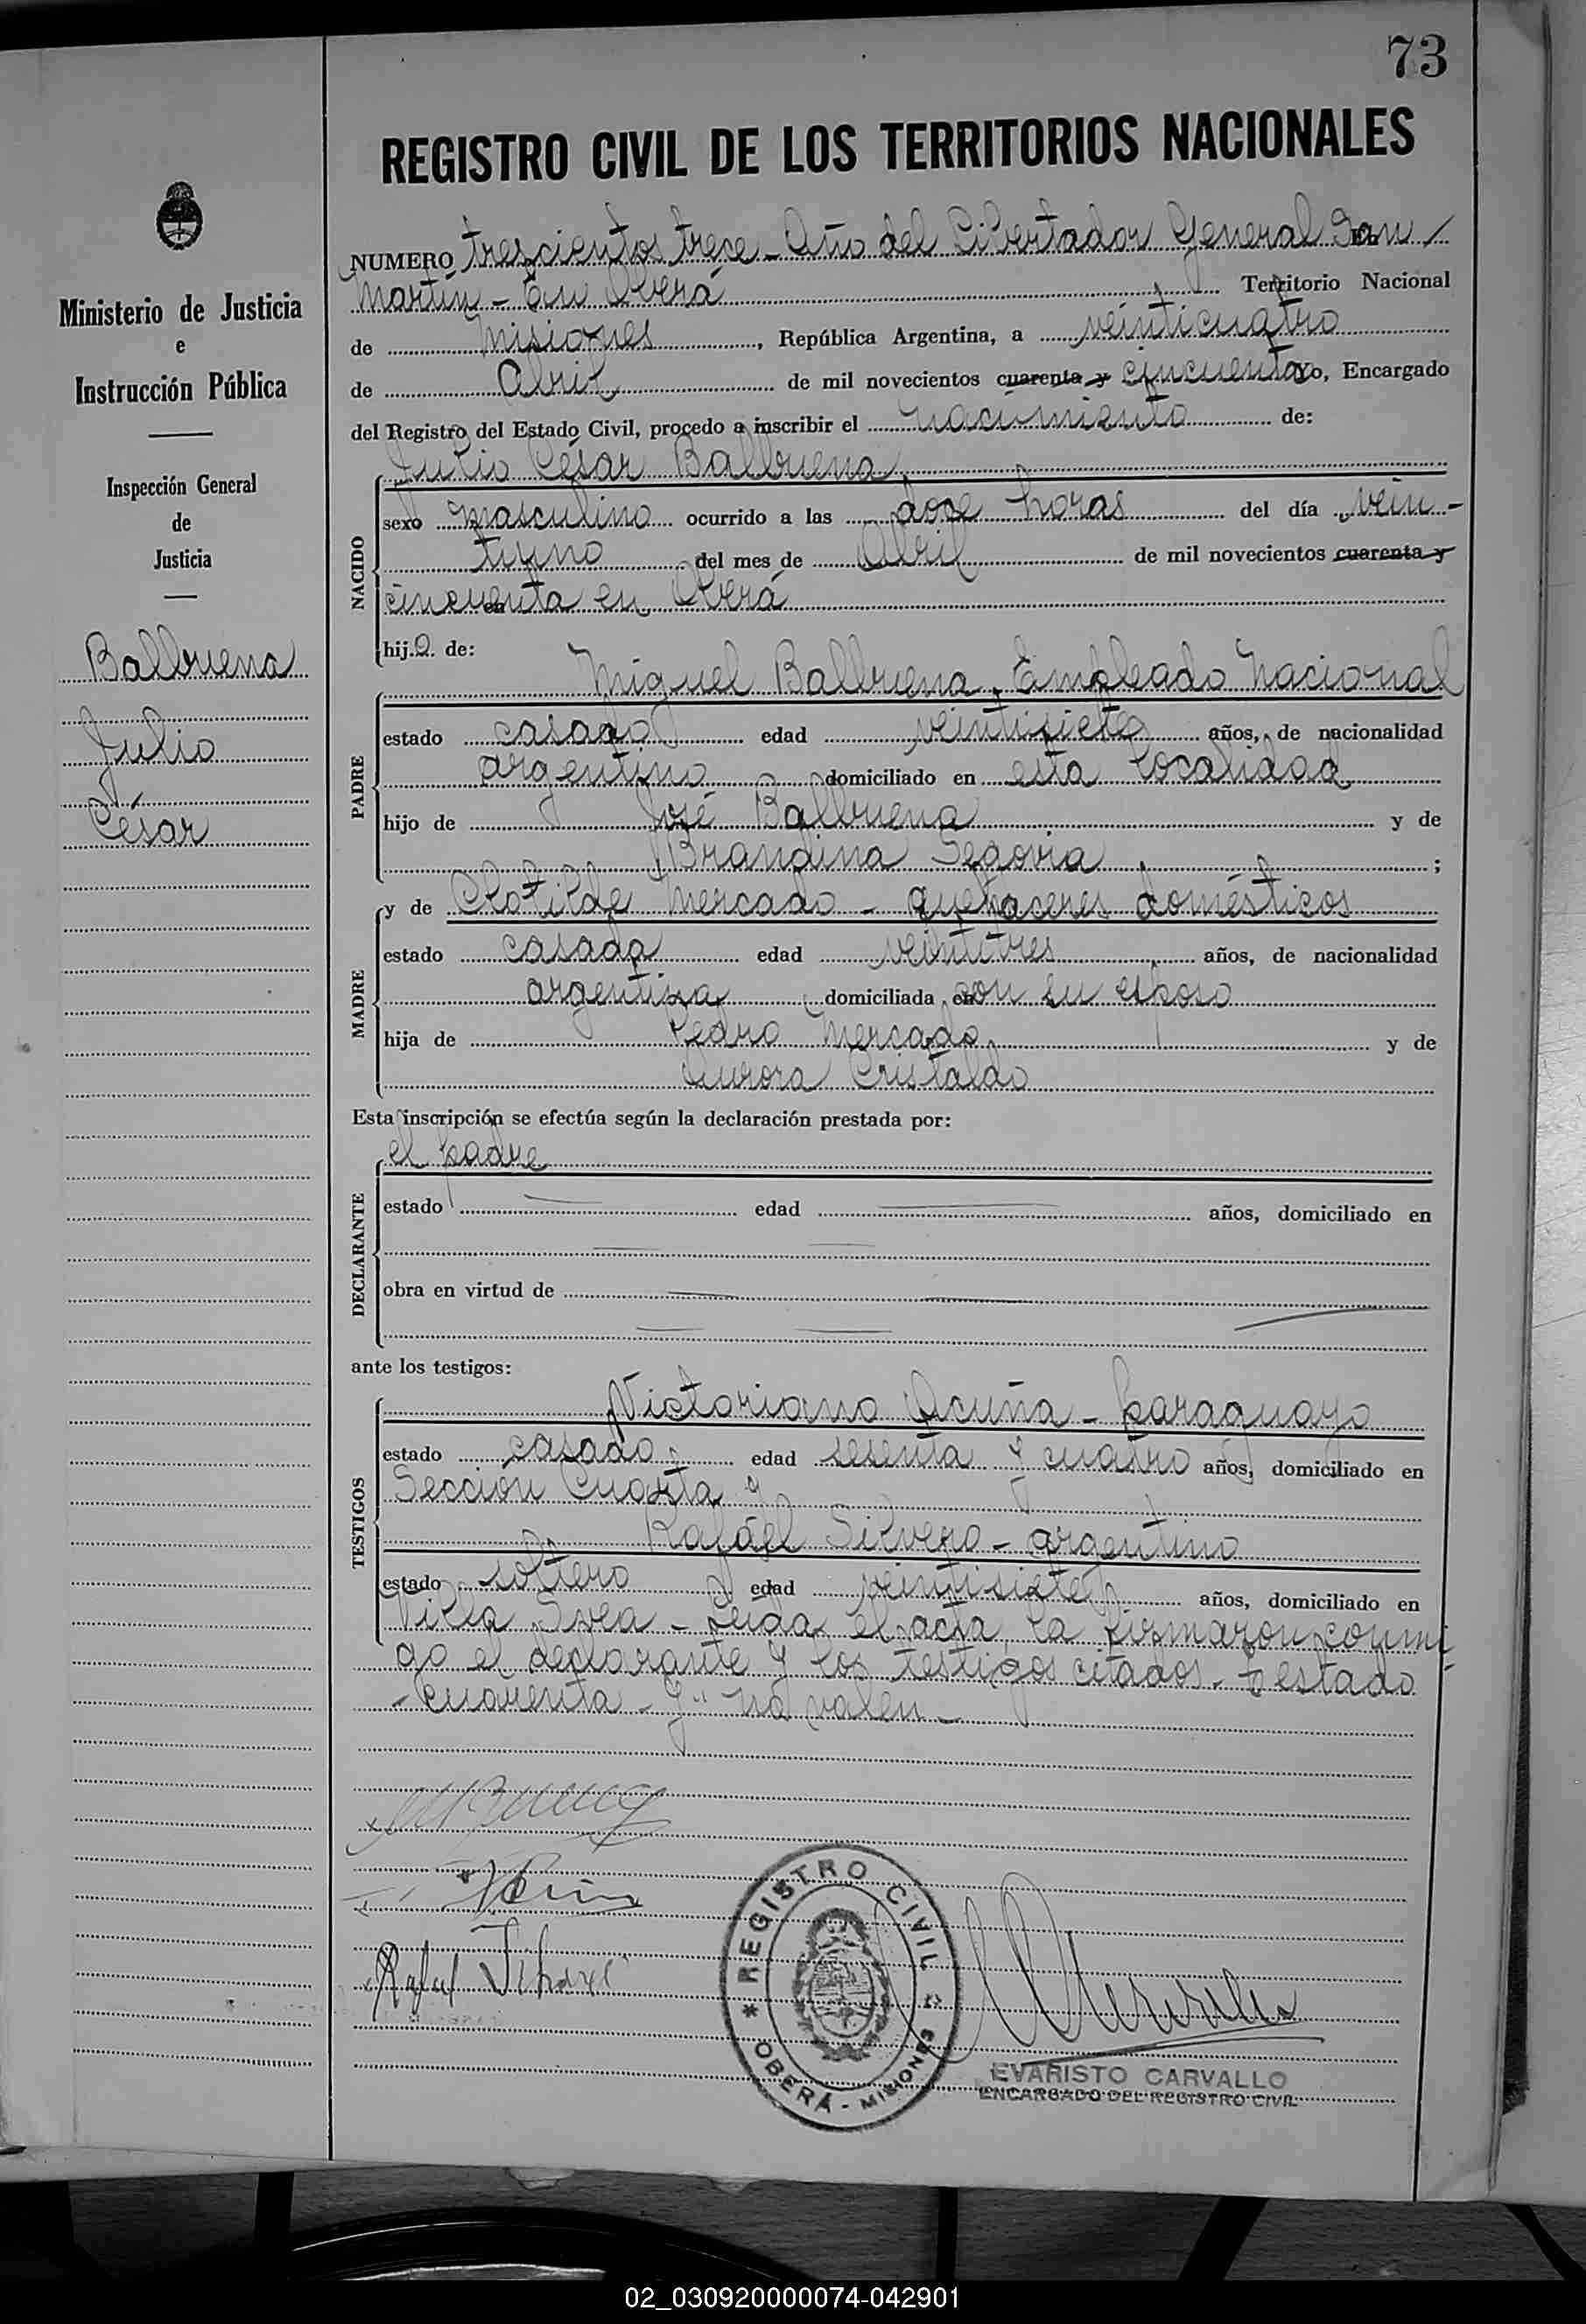 73
REGISTRO CIVIL DE LOS TERRITORIOS NACIONALES
Ministerio de Justicia
e
Instrucción Pública
Inspección General
de
Justicia
Balbuena
Julio
César
NUMERO trescientos trece - Año del Libertador General San
Martín - En Oberá Territorio Nacional
de Misiones, República Argentina, a veinticuatro
de Abril de mil novecientos cuarenta y cincuenta Yo, Encargado
del Registro del Estado Civil, procedo a inscribir el nacimiento de:
Julio César Balbuena
NACIDO
sexo masculino ocurrido a las doce horas del día vein-
tiuno del mes de Abril de mil novecientos cuarenta y
cincuenta en Oberá
hijo de:
PADRE
Miguel Balbuena, Empleado Nacional
estado casado edad veintisiete años, de nacionalidad
argentino domiciliado en esta localidad
hijo de José Balbuena y de
Brandina Segovia ;
MADRE
y de Clotilde Mercado - quehaceres domésticos
estado casada edad veintitres años, de nacionalidad
argentina domiciliada con su esposo
hija de Pedro Mercado y de
Aurora Cristaldo
Esta inscripción se efectúa según la declaración prestada por:
DECLARANTE
el padre
estado edad años, domiciliado en
obra en virtud de
ante los testigos:
TESTIGOS
Victoriano Acuña - paraguayo
estado casado edad sesenta y cuatro años, domiciliado en
Sección Cuarta y
Rafael Silvero - argentino
estado soltero edad veintisiete años, domiciliado en
Villa Svea - Leída el acta, la firmaron conmi
go el declarante y los testigos citados - Testado
- cuarenta - y" no valen -
REGISTRO CIVIL
OBERÁ - MISIONES
EVARISTO CARVALLO
ENCARGADO DEL REGISTRO CIVIL
02_030920000074-042901